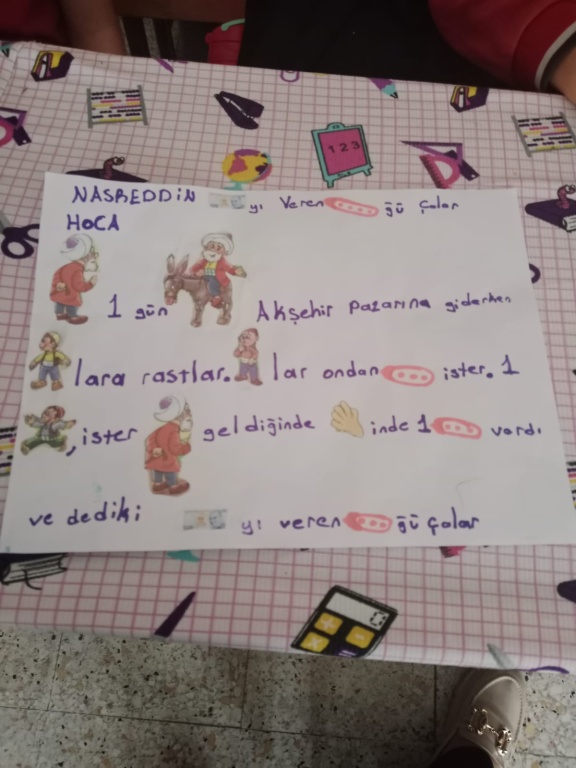 NASREDDİN yı Veren ğü çalar
HOCA
1 gün Akşehir Pazarına giderken
lara rastlar. lar ondan ister. 1
, ister geldiğinde inde 1 vardı
ve dediki yı veren ğü çalar
1 2 3